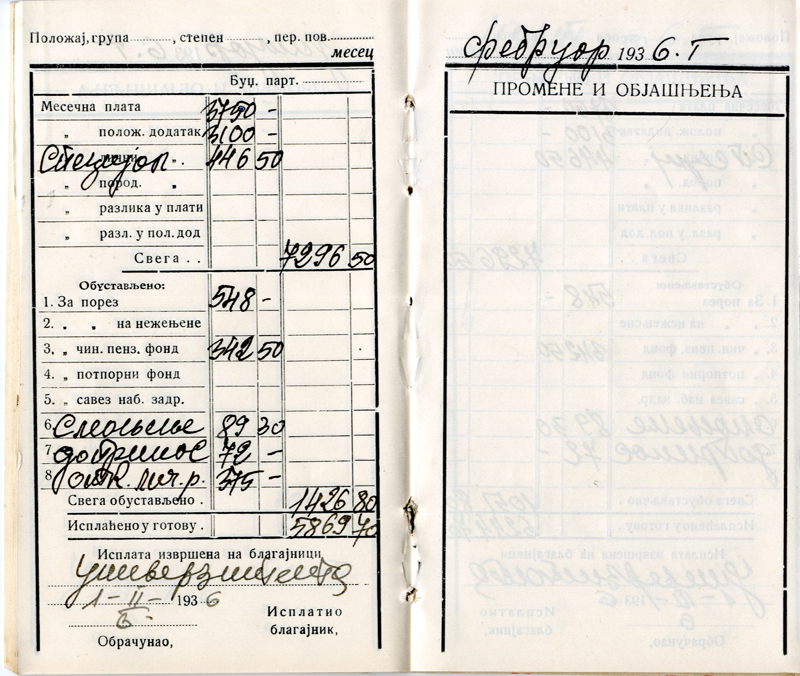 Положај, група , степен , пер. пов.
месец
Буџ. парт.
Месечна плата 3750 -
„ полож. додатак 3100 -
„ 446 50
„ пород. „
„ разлика у плати
„ разл. у пол. дод
Свега . . 7296 50
Обустављено:
1. За порез 548 -
2. „ „ на нежењене
3. „ чин. пенз. фонд 342 50
4. „ потпорни фонд
5. „ савез наб. задр.
6 89 30
7 допринос 72 -
8 375 -
Свега обустављено . 1426 80
Исплаћено у готову . 5869 70
Исплата извршена на благајници
Универзитета
1-II- 1936
Исплатио
благајник,
Обрачунао,
фебруар 1936. г
ПРОМЕНЕ И ОБЈАШЊЕЊА